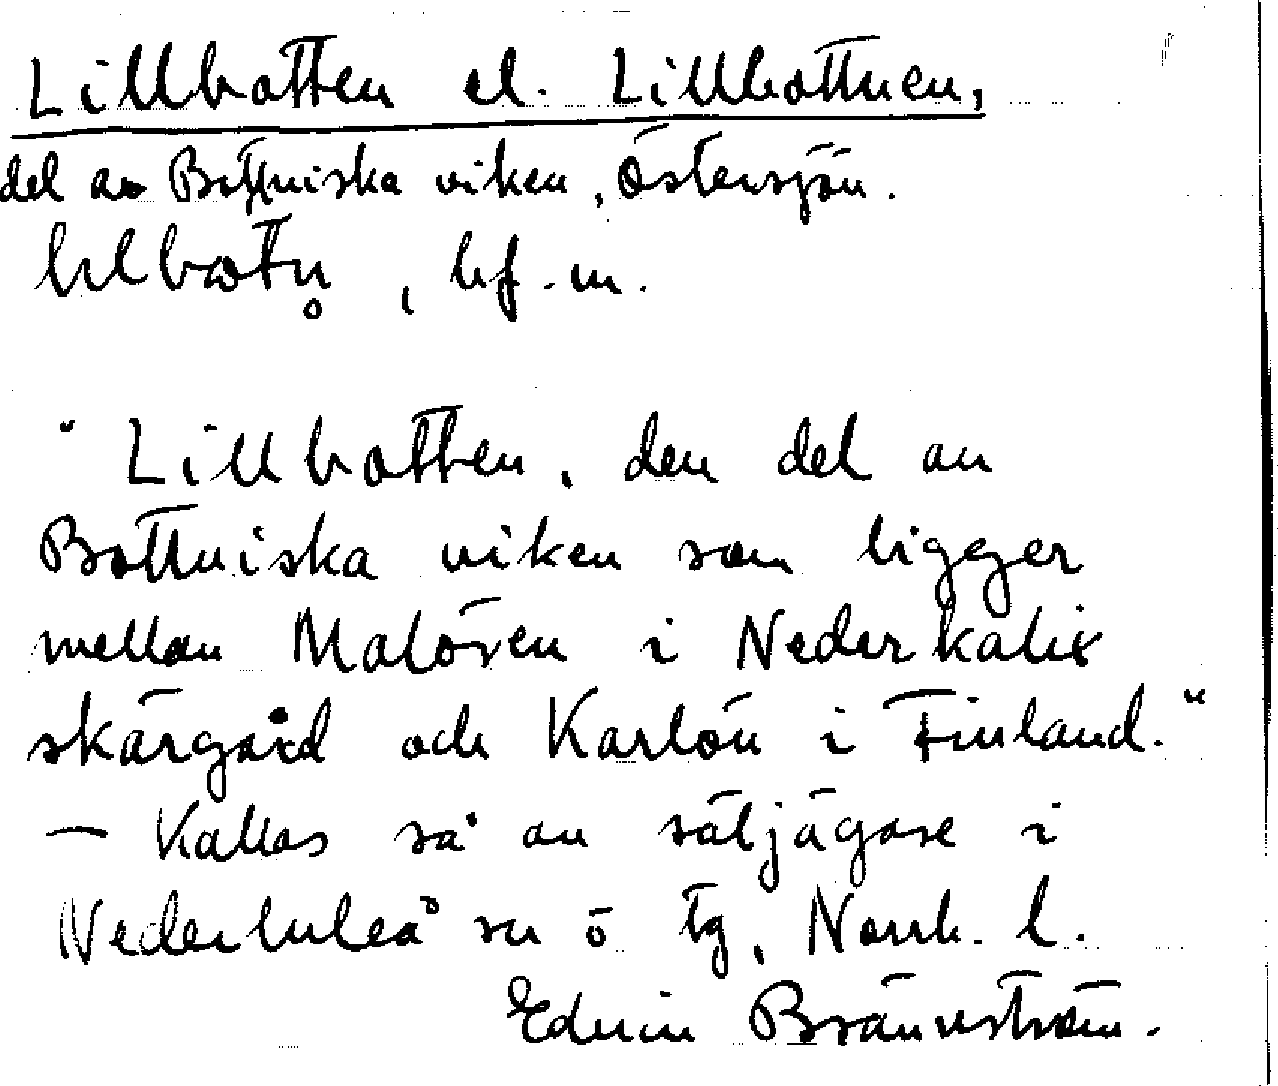 Lillbotten el. Lillbottnen,
del av Bottniska viken, Östersjön.
lılbɷtn̥, bf. m.
"Lillbotten, den del av
Bottniska viken som ligger
mellan Malören i Nederkalix
skärgård och Karlön i Finland."
— Kallas så av säljägare i
Nederluleå sn ö tg, Norrb. l.
Edvin Brännström.